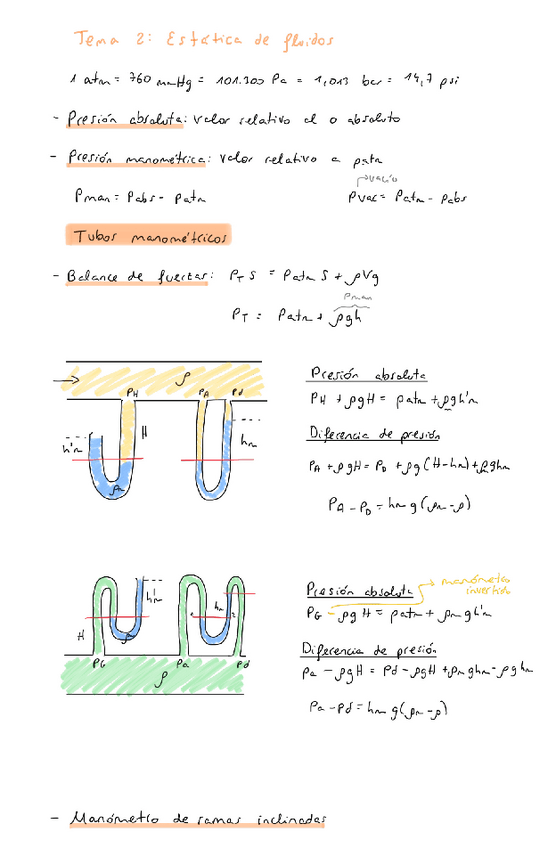 Tema 2: Estática de fluidos
1 atm = 760 mmHg = 101.300 Pa = 1,013 bar = 14,7 psi
- Presión absoluta: valor relativo al 0 absoluto
- Presión manométrica: valor relativo a patm
Pman = Pabs - Patm
→ vacío
Pvac = Patm - Pabs
Tubos manométricos
- Balance de fuerzas: P_T S = Patm S + ρVg
Pman
P_T = Patm + ρgh
ρ
PH PA Pd
H
h'm
hm
ρm
Presión absoluta
PH + ρgH = patm + ρgh'm
Diferencia de presión
PA + ρgH = PD + ρg(H-hm) + ρghm
PA - PD = hm g (ρm - ρ)
h'm
hm
H
PG Pa Pd
ρ
Presión absoluta → manómetro invertido
PG - ρgH = patm + ρm gh'm
Diferencia de presión
Pa - ρgH = Pd - ρgH + ρm ghm - ρghm
Pa - Pd = hm g (ρm - ρ)
- Manómetro de ramas inclinadas